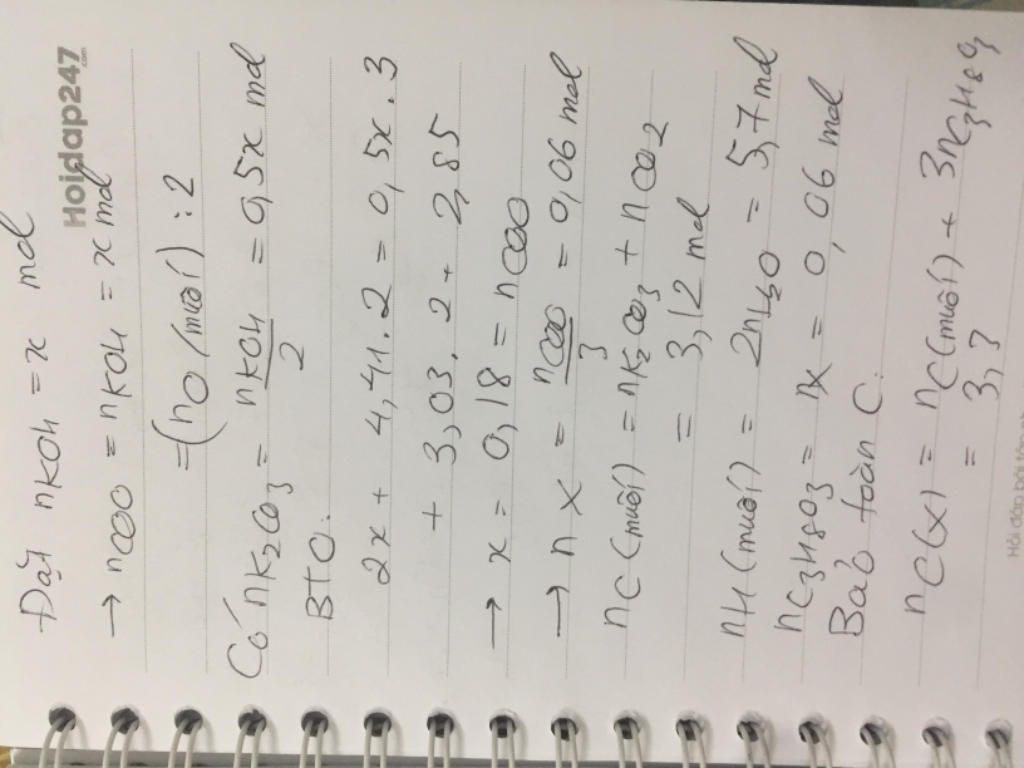 Hoidap247
.com
Đặt nKOH = x mol
→ nCOO = nKOH = x mol
= (nO (muối) : 2
Có nK2CO3 = nKOH/2 = 0,5x mol
BTO:
2x + 4,41.2 = 0,5x.3
+ 3,03.2 + 2,85
→ x = 0,18 = nCOO
→ nX = nCOO/3 = 0,06 mol
nC(muối) = nK2CO3 + nCO2
= 3,12 mol
nH(muối) = 2nH2O = 5,7 mol
nC3H8O3 = nX = 0,06 mol
Bảo toàn C:
nC(X) = nC(muối) + 3nC3H8O3
= 3,3